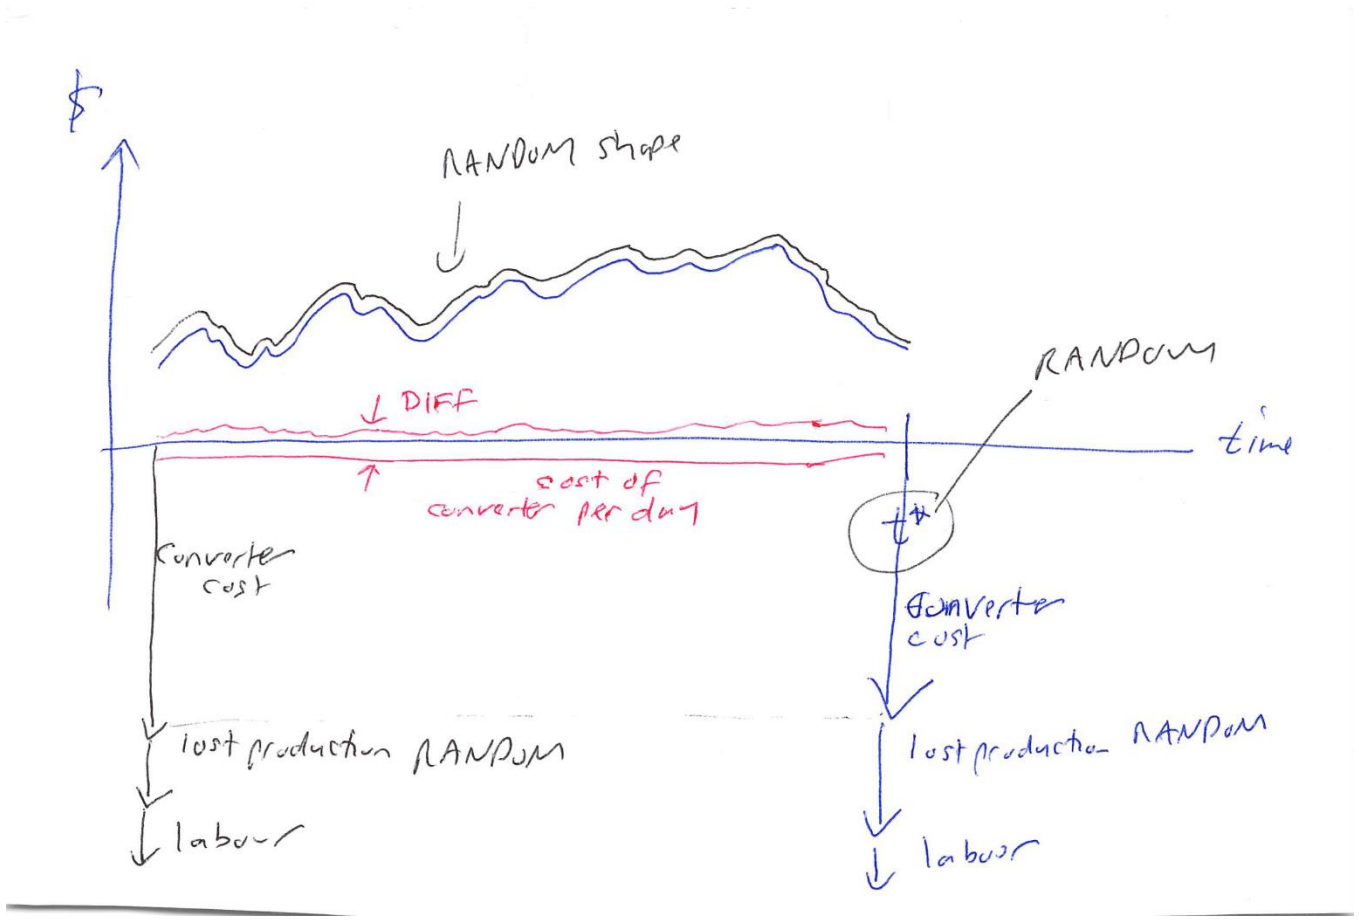 $
RANDOM shape
RANDOM
DIFF
time
cost of
converter per day
t*
converter
cost
converter
cost
lost production RANDOM
lost production RANDOM
labour
labour